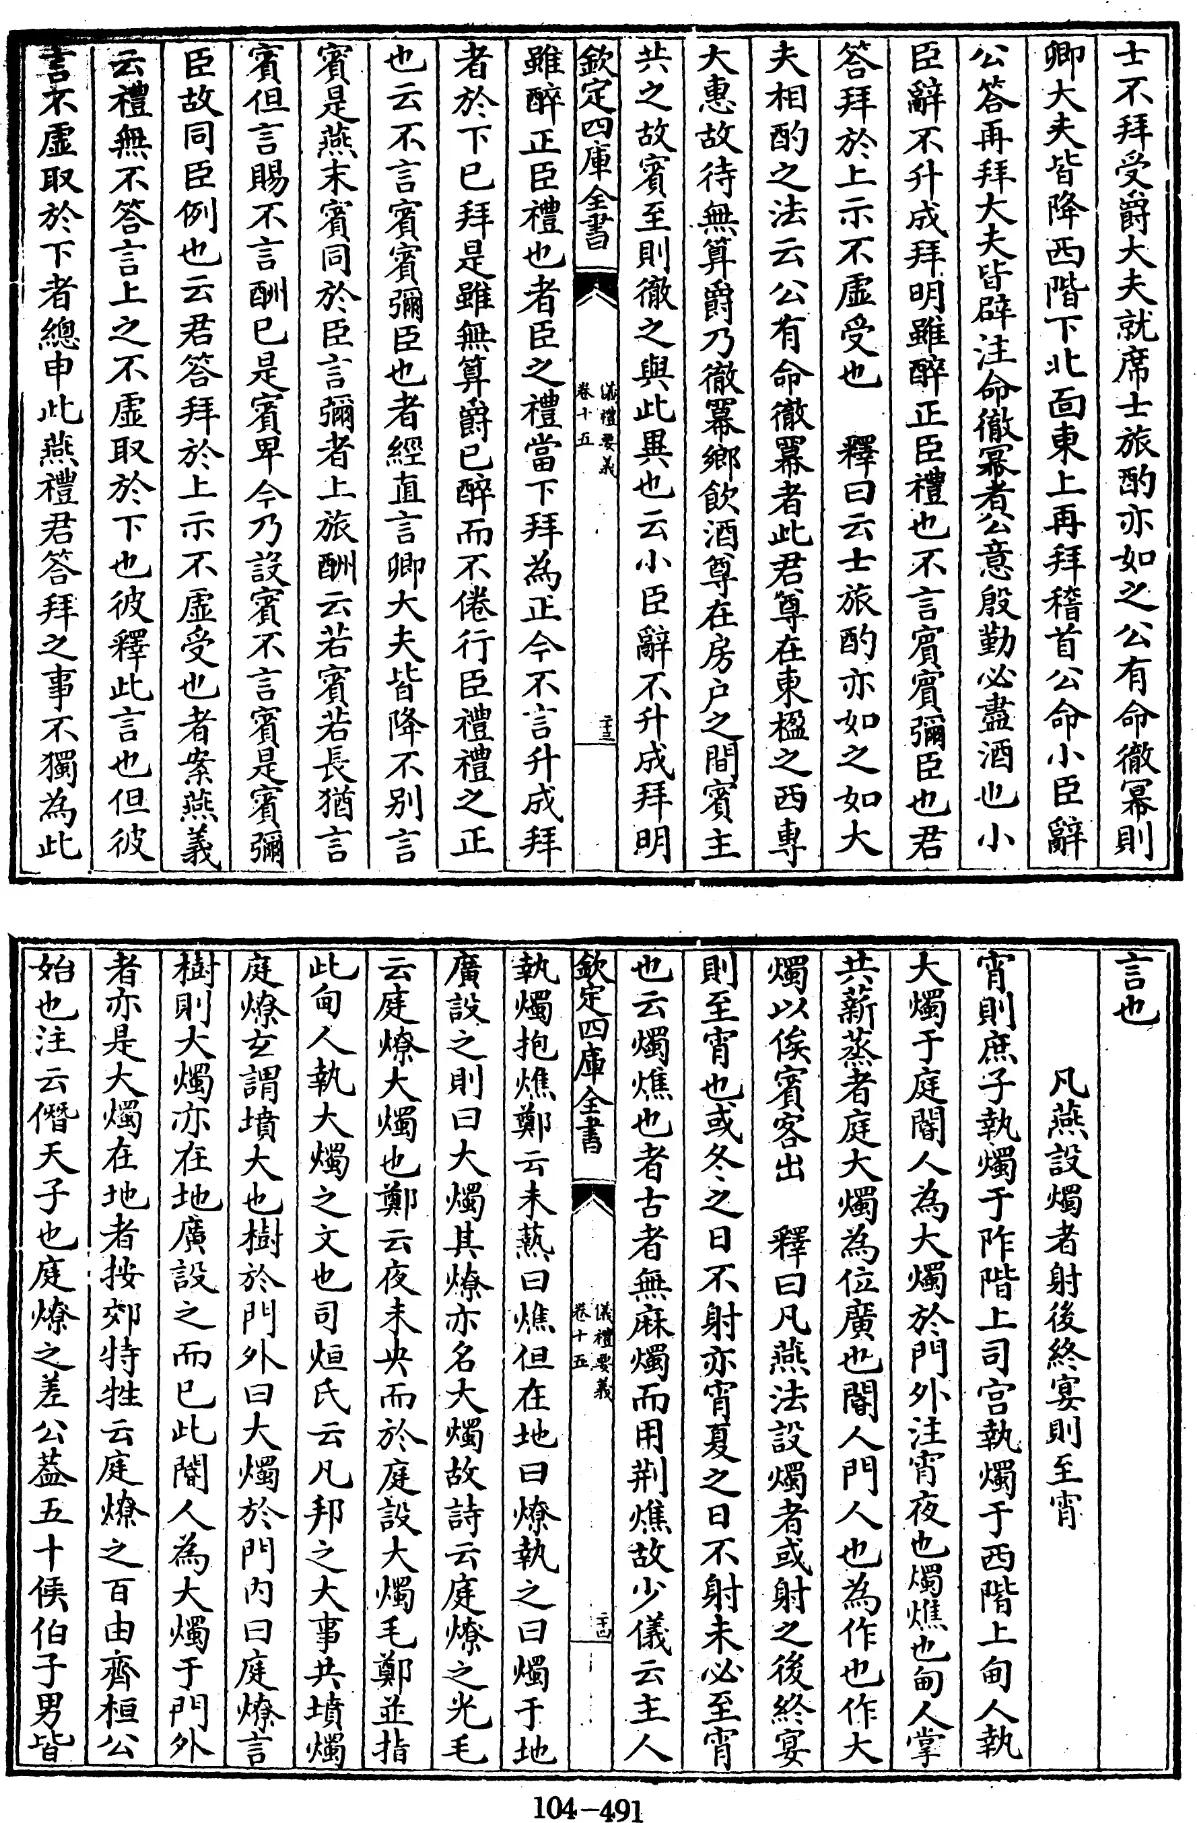 士不拜受爵大夫就席士旅酌亦如之公有命徹冪則
卿大夫皆降西階下北面東上再拜稽首公命小臣辭
公答再拜大夫皆辟注命徹冪者公意殷勤必盡酒也小
臣辭不升成拜明雖醉正臣禮也不言賓賓彌臣也君
答拜於上示不虛受也　釋曰云士旅酌亦如之如大
夫相酌之法云公有命徹冪者此君尊在東楹之西專
大惠故待無算爵乃徹冪鄉飲酒尊在房户之間賓主
共之故賓至則徹之與此異也云小臣辭不升成拜明
欽定四庫全書
儀禮要義
卷十五
二十三
雖醉正臣禮也者臣之禮當下拜為正今不言升成拜
者於下已拜是雖無算爵已醉而不倦行臣禮禮之正
也云不言賓賓彌臣也者經直言卿大夫皆降不别言
賓是燕末賓同於臣言彌者上旅酬云若賓若長猶言
賓但言賜不言酬已是賓卑今乃設賓不言賓是賓彌
臣故同臣例也云君答拜於上示不虛受也者案燕義
云禮無不答言上之不虛取於下也彼釋此言也但彼
言不虛取於下者總申此燕禮君答拜之事不獨為此
言也
凡燕設燭者射後終宴則至宵
宵則庶子執燭于阼階上司宫執燭于西階上甸人執
大燭于庭閽人為大燭於門外注宵夜也燭燋也甸人掌
共薪蒸者庭大燭為位廣也閽人門人也為作也作大
燭以俟賓客出　釋曰凡燕法設燭者或射之後終宴
則至宵也或冬之日不射亦宵夏之日不射未必至宵
也云燭燋也者古者無麻燭而用荆燋故少儀云主人
欽定四庫全書
儀禮要義
卷十五
二十四
執燭抱燋鄭云未爇曰燋但在地曰燎執之曰燭于地
廣設之則曰大燭其燎亦名大燭故詩云庭燎之光毛
云庭燎大燭也鄭云夜未央而於庭設大燭毛鄭並指
此甸人執大燭之文也司烜氏云凡邦之大事共墳燭
庭燎玄謂墳大也樹於門外曰大燭於門内曰庭燎言
樹則大燭亦在地廣設之而已此閽人為大燭于門外
者亦是大燭在地者按郊特牲云庭燎之百由齊桓公
始也注云僭天子也庭燎之差公葢五十侯伯子男皆
104-491